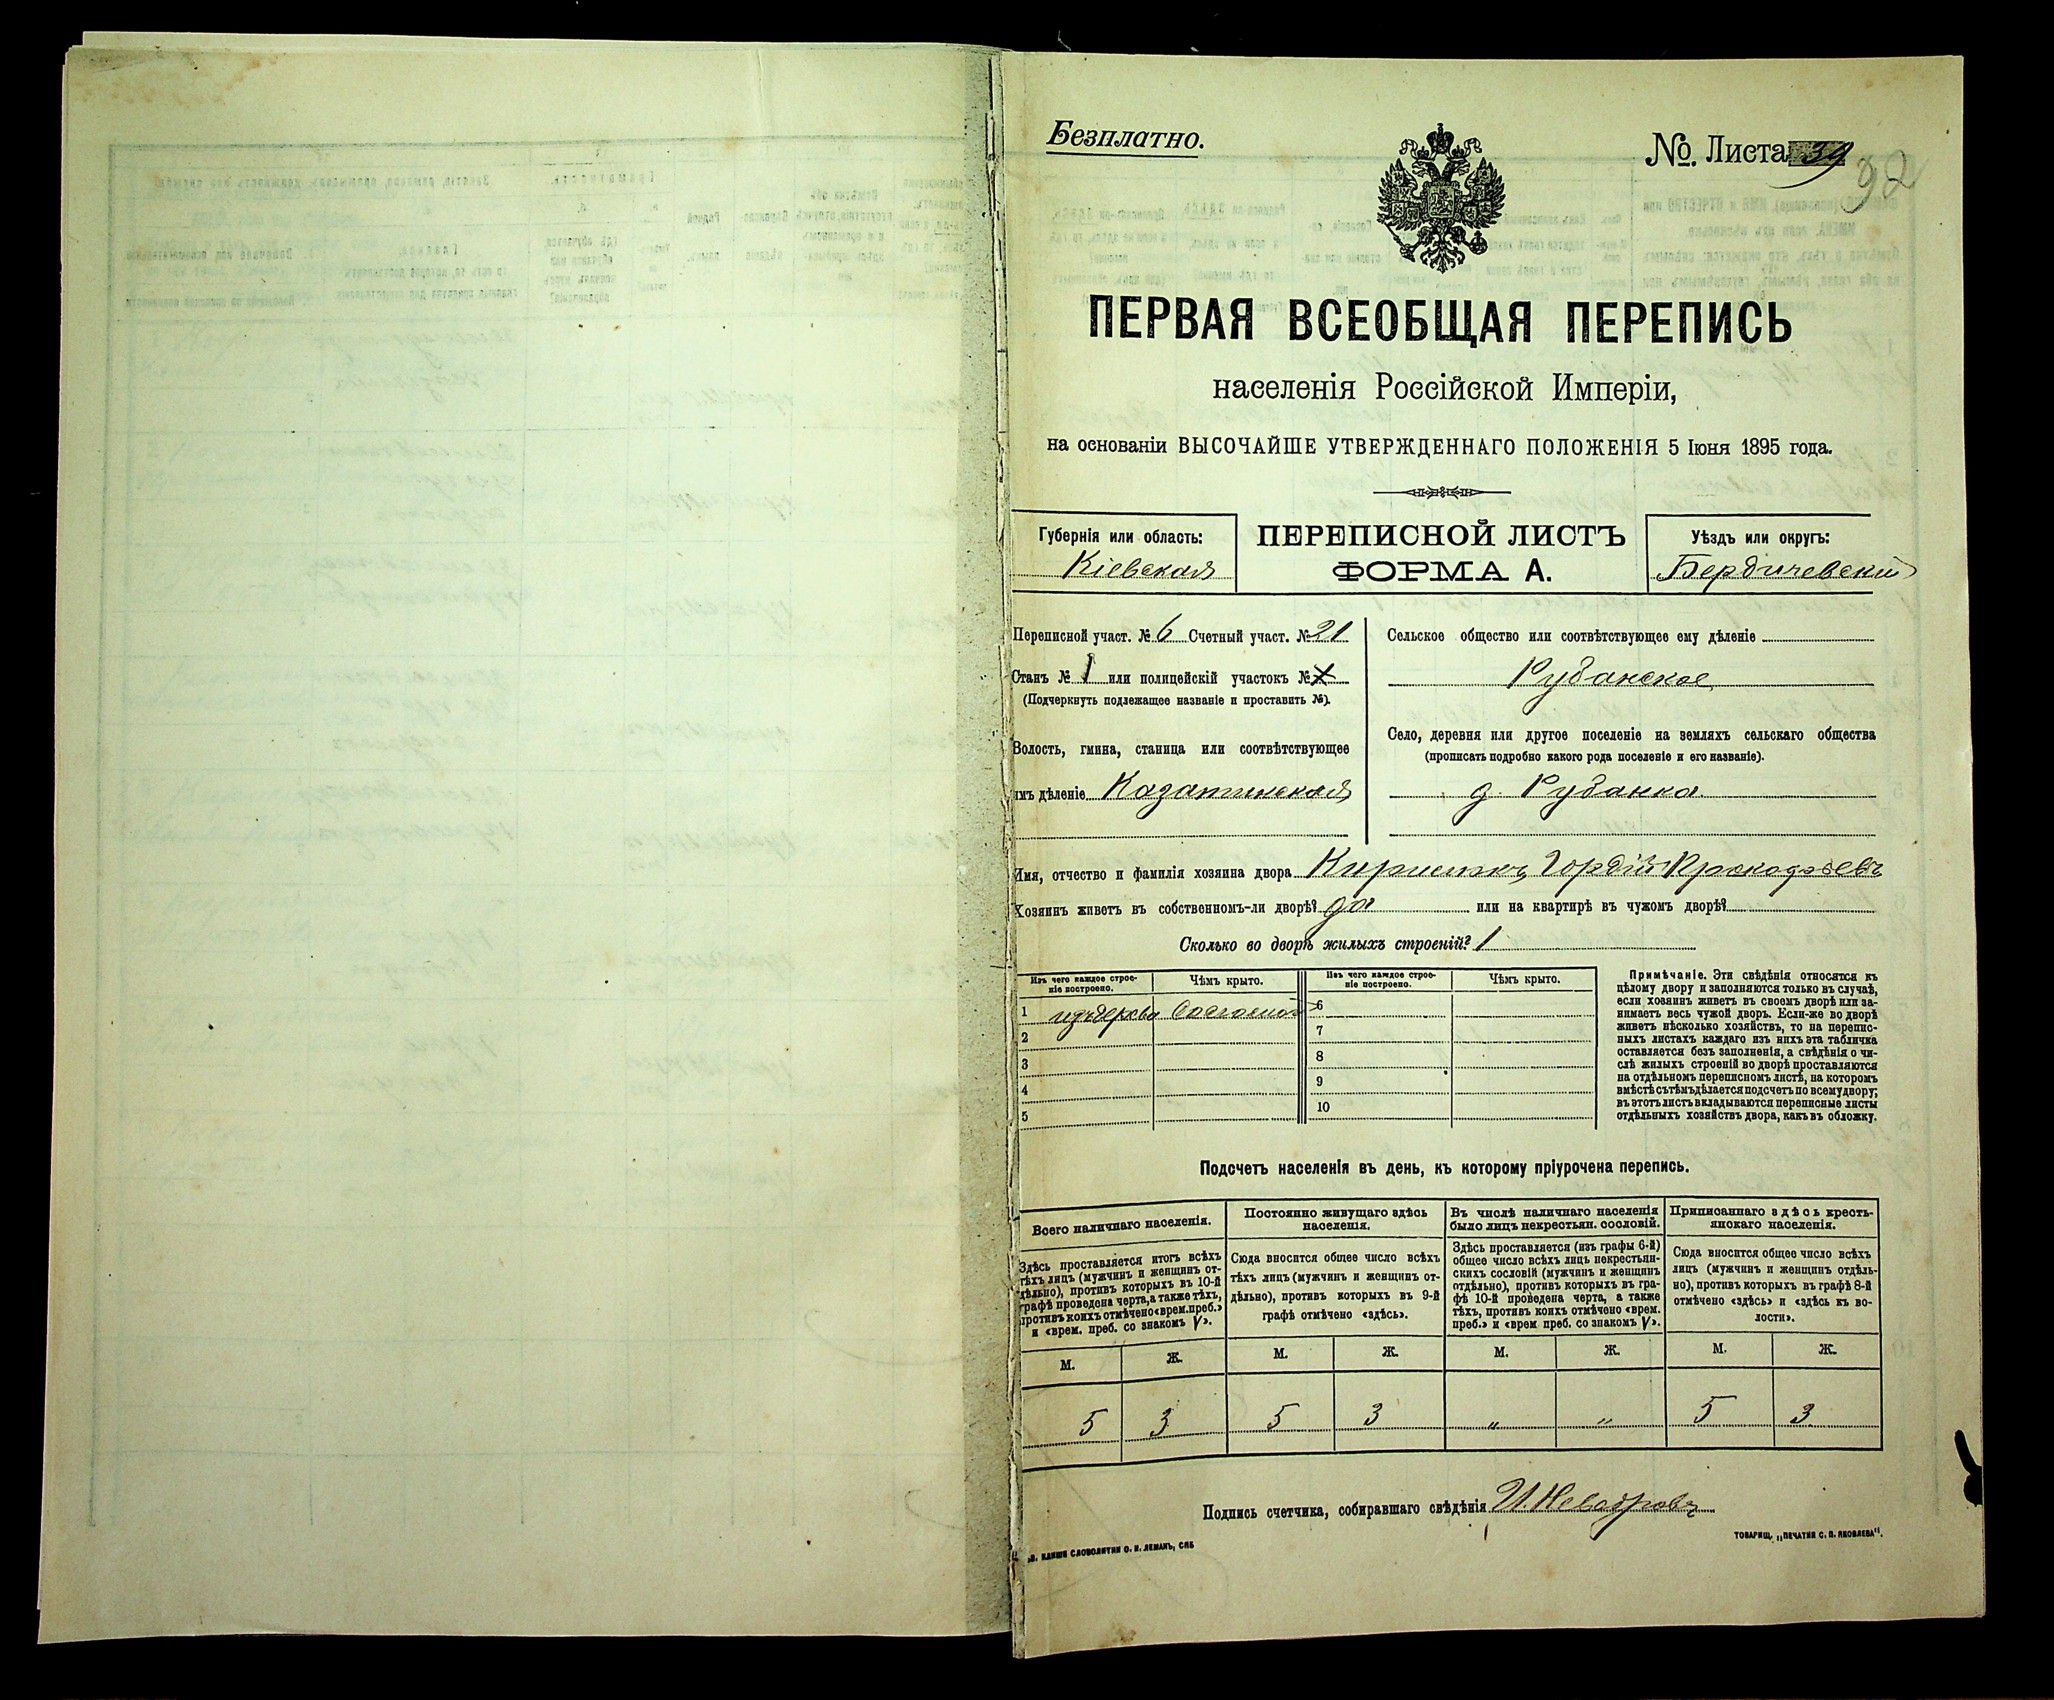 Безплатно.
№. Листа 39
92
ПЕРВАЯ ВСЕОБЩАЯ ПЕРЕПИСЬ
населенія Россійской Имперіи,
на основаніи ВЫСОЧАЙШЕ УТВЕРЖДЕННАГО ПОЛОЖЕНІЯ 5 Іюня 1895 года.
Губернія или область:
Кіевская
ПЕРЕПИСНОЙ ЛИСТЪ
ФОРМА А.
Уѣздъ или округъ:
Бердичевскій
Переписной участ. № 6 Счетный участ. № 21
Станъ № 1 или полицейскій участокъ №
(Подчеркнуть подлежащее названіе и проставить №).
Волость, гмина, станица или соотвѣтствующее
имъ дѣленіе Казатинская
Сельское общество или соотвѣтствующее ему дѣленіе
Рубанское
Село, деревня или другое поселеніе на земляхъ сельскаго общества
(прописать подробно какого рода поселеніе и его названіе).
д. Рубанка.
Имя, отчество и фамилія хозяина двора Гордій
Хозяинъ живетъ въ собственномъ-ли дворѣ? да или на квартирѣ въ чужомъ дворѣ?
Сколько во дворѣ жилыхъ строеній? 1
Изъ чего каждое строеніе построено.
Чѣмъ крыто.
Изъ чего каждое строеніе построено.
Чѣмъ крыто.
1 изъ дерева Соломой
2
3
4
5
6
7
8
9
10
Примѣчаніе. Эти свѣдѣнія относятся къ
цѣлому двору и заполняются только въ случаѣ,
если хозяинъ живетъ въ своемъ дворѣ или за-
нимаетъ весь чужой дворъ. Если-же во дворѣ
живетъ нѣсколько хозяйствъ, то на перепис-
ныхъ листахъ каждаго изъ нихъ эта табличка
оставляется безъ заполненія, а свѣдѣнія о чи-
слѣ жилыхъ строеній во дворѣ проставляются
на отдѣльномъ переписномъ листѣ, на которомъ
вмѣстѣ съ тѣмъ дѣлается подсчетъ по всему двору;
въ этотъ листъ вкладываются переписные листы
отдѣльныхъ хозяйствъ двора, какъ въ обложку.
Подсчетъ населенія въ день, къ которому пріурочена перепись.
Всего наличнаго населенія.
Здѣсь проставляется итогъ всѣхъ
тѣхъ лицъ (мужчинъ и женщинъ от-
дѣльно), противъ которыхъ въ 10-й
графѣ проведена черта, а также тѣхъ,
противъ коихъ отмѣчено «врем. преб.»
и «врем. преб. со знакомъ V».
Постоянно живущаго здѣсь
населенія.
Сюда вносится общее число всѣхъ
тѣхъ лицъ (мужчинъ и женщинъ от-
дѣльно), противъ которыхъ въ 9-й
графѣ отмѣчено «здѣсь».
Въ числѣ наличнаго населенія
было лицъ некрестьян. сословій.
Здѣсь проставляется (изъ графы 6-й)
общее число всѣхъ лицъ некрестьян-
скихъ сословій (мужчинъ и женщинъ
отдѣльно), противъ которыхъ въ гра-
фѣ 10-й проведена черта, а также
тѣхъ, противъ коихъ отмѣчено «врем.
преб.» и «врем преб. со знакомъ V».
Приписаннаго здѣсь кресть-
янскаго населенія.
Сюда вносится общее число всѣхъ
лицъ (мужчинъ и женщинъ отдѣль-
но), противъ которыхъ въ графѣ 8-й
отмѣчено «здѣсь» и «здѣсь въ во-
лости».
М. Ж. М. Ж. М. Ж. М. Ж.
5 3 5 3 „ „ 5 3
Подпись счетчика, собиравшаго свѣдѣнія
КЛИШЕ СЛОВОЛИТНИ О. И. ЛЕМАНЪ, СПБ
ТОВАРИЩ. „ПЕЧАТНИ С. П. ЯКОВЛЕВА".